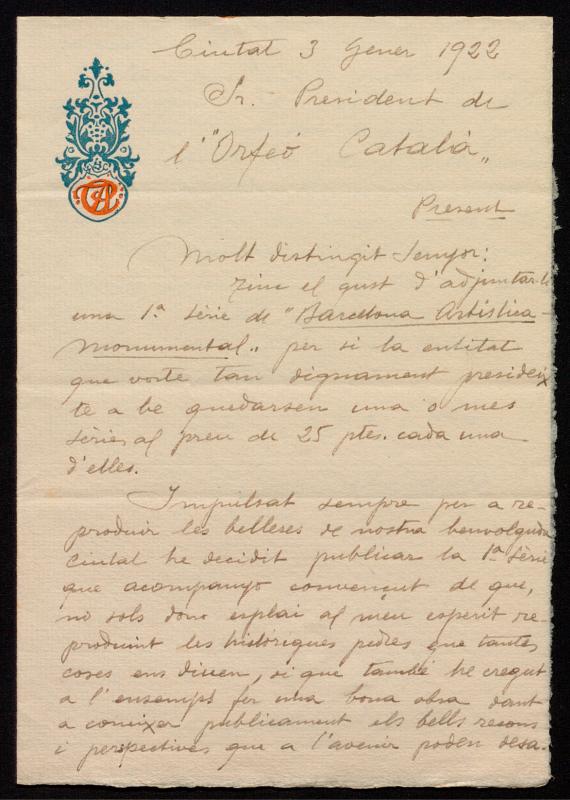 Ciutat 3 Gener 1922
Sr. President de
l'"Orfeó Català"
Present
Molt distingit Senyor:
Tinc el gust d'adjuntarli
una 1ª Sèrie de "Barcelona Artística-
Monumental" per si la entitat
que vostè tan dignament presideix
te a be quedarsen una o mes
sèries al preu de 25 ptes. cada una
d'elles.
Impulsat sempre per a re-
produir les belleses de nostra benvolguda
Ciutat he decidit publicar la 1ª Sèrie
que acompanyo convençut de que,
no sols donc esplai al meu esperit re-
produint les historiques pedres que tantes
coses ens diuen, si que també he cregut
a l'ensemps fer una bona obra dant
a coneixer publicament els bells recons
i perspectives que a l'avenir poden desa-